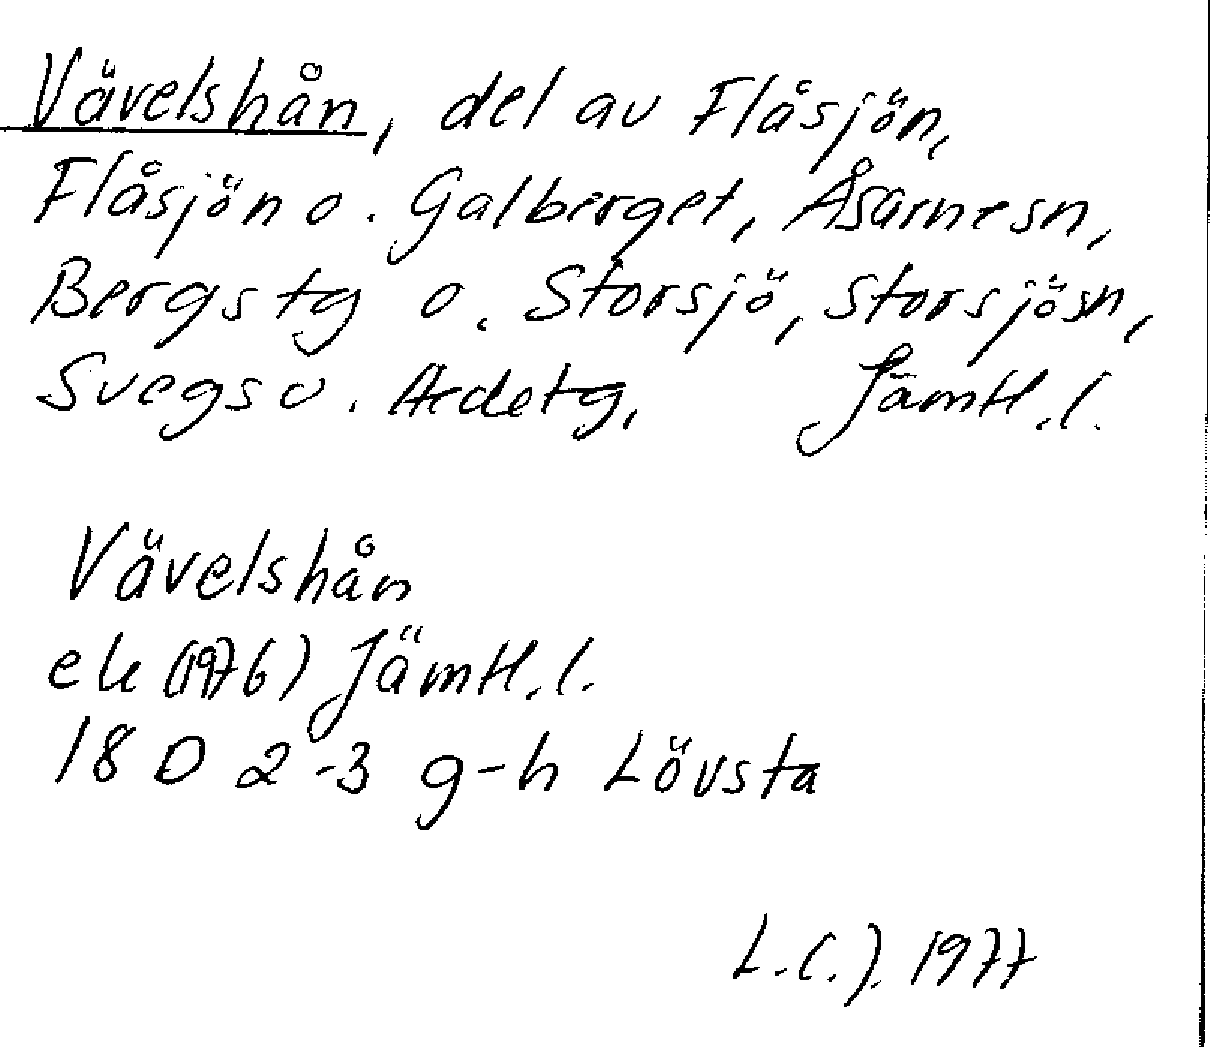 Vävelshån, del av Flåsjön,
Flåsjön o. Galberget, Åsarnesn,
Bergstg o. Storsjö, Storsjösn,
Svegs o. Ådetg, Jämtl.l.
Vävelshån
ek (1976) Jämtl.l.
18 D 2-3 g-h Lövsta
L.C.J. 1977